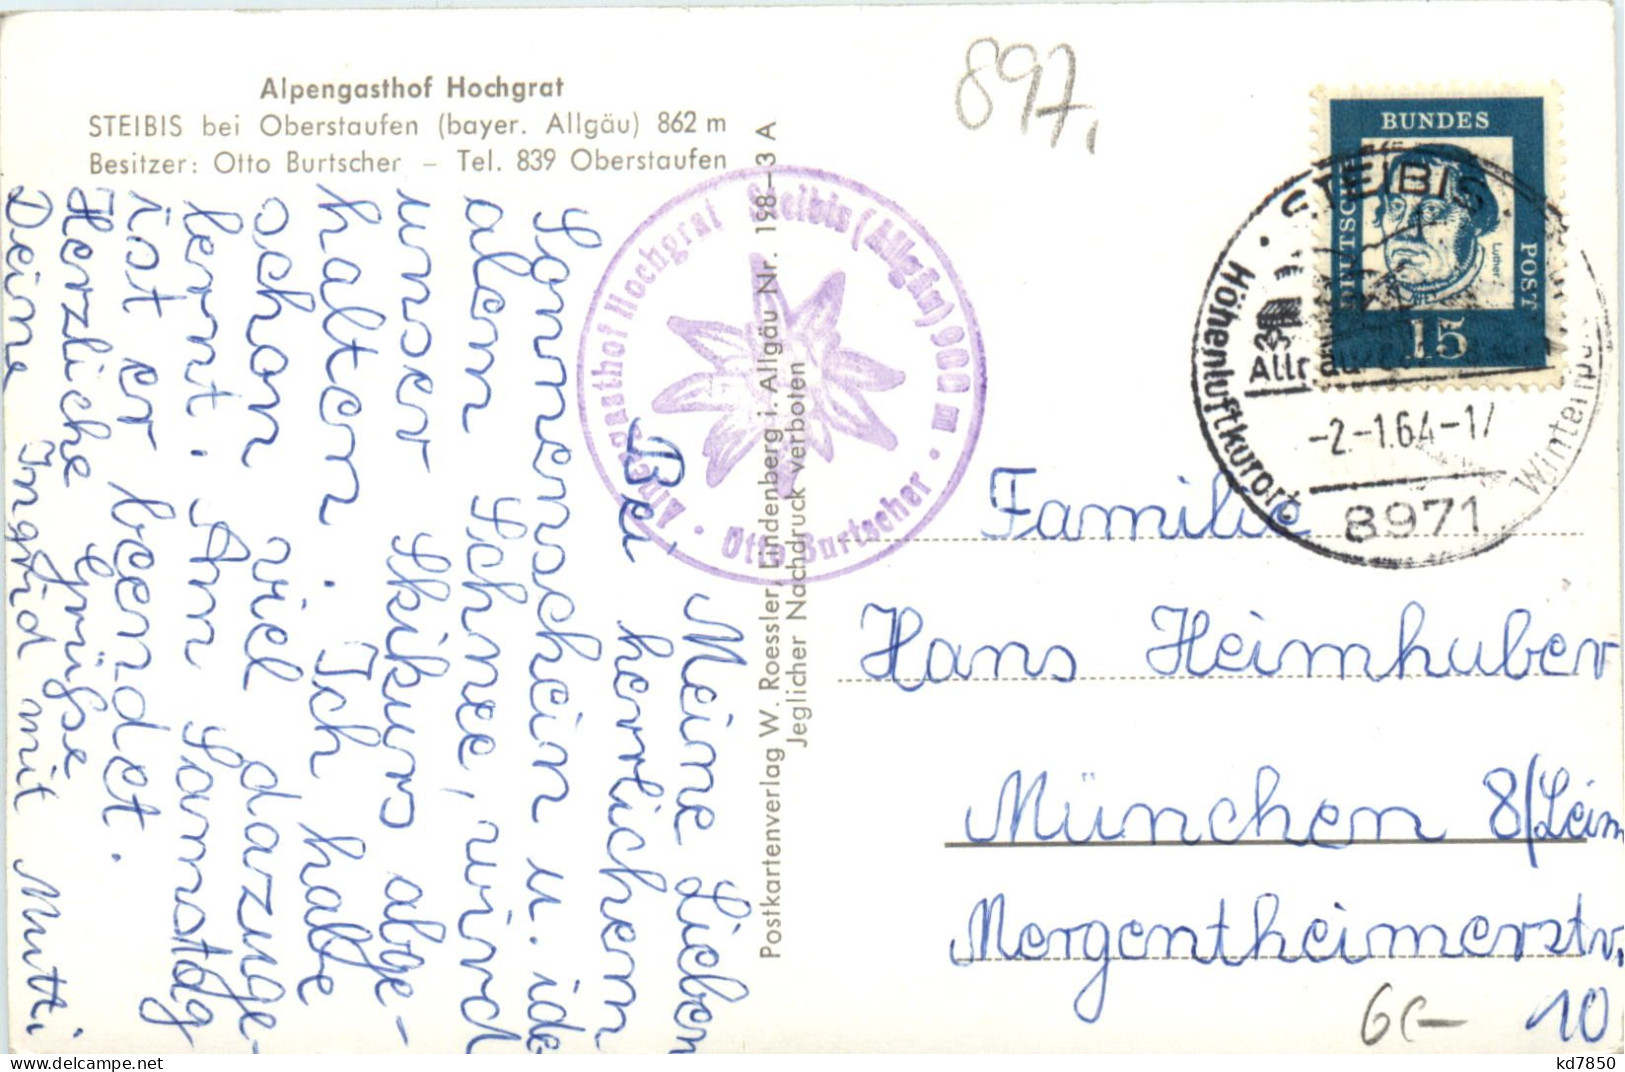 Alpengasthof Hochgrat
STEIBIS bei Oberstaufen (bayer. Allgäu) 862 m
Besitzer: Otto Burtscher – Tel. 839 Oberstaufen
897,
BUNDES
POST
DEUTSCHE
Luther
15
STEIBIS
Höhenluftkurort
Allgäu
-2.-1.64-17
8971
Alpengasthof Hochgrat Steibis (Allgäu) 900 m
Otto Burtscher
Postkartenverlag W. Roessler, Lindenberg i. Allgäu Nr. 198–3 A
Jeglicher Nachdruck verboten
Meine Lieben
Bei herlichem
Sonnenschein u. ide
alem Schnee, wird
unser Skikurs abge-
halten. Ich habe
schon viel dazuge-
lernt. Am Samstag
ist er beendet.
Herzliche Grüße
Deine Ingrid mit Mutti
Familie
Hans Heimhuber
München 8/Leim
Mergentheimerstr.
10
kd7850